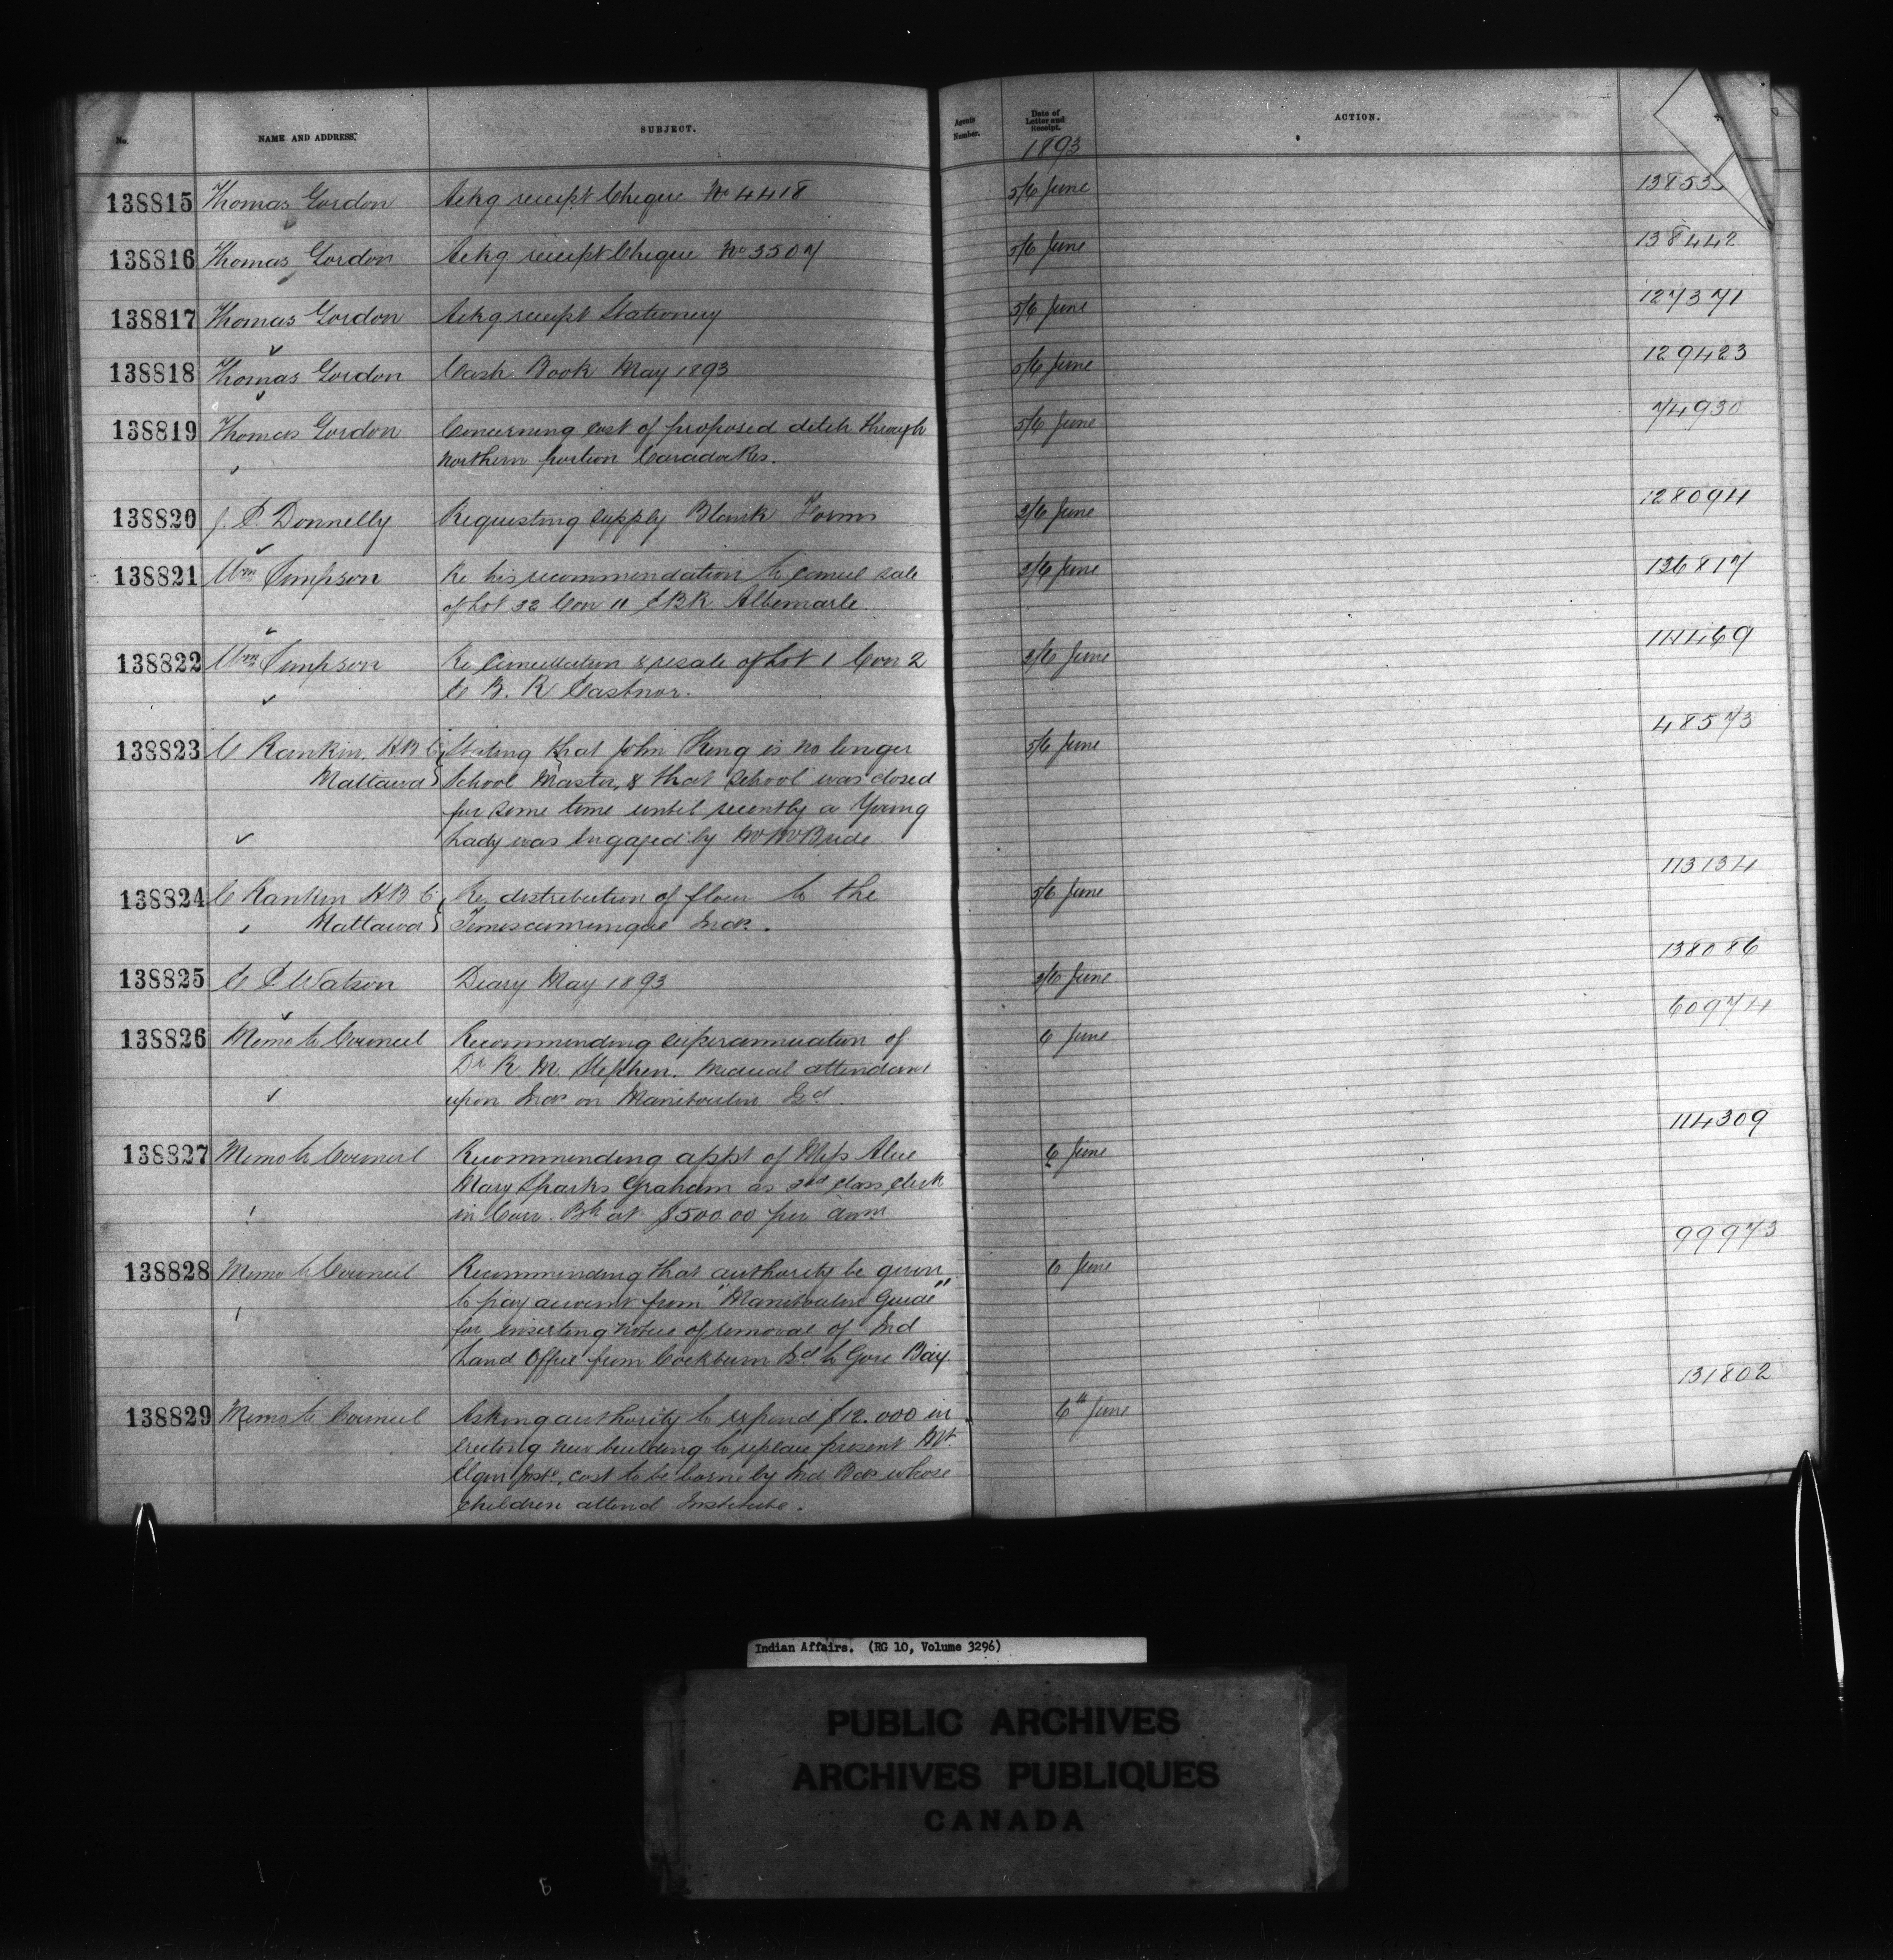 No. NAME AND ADDRESS. SUBJECT. Agents Number. Date of Letter and Receipt. ACTION.
1893
138815 Thomas Gordon Ackg receipt Cheque No 4418 5/6 June 13853
138816 Thomas Gordon Ackg receipt Cheque No 3507 5/6 June 138442
138817 Thomas Gordon Ackg receipt Stationery 5/6 June 127371
138818 Thomas Gordon Cash Book May 1893 5/6 June 129423
138819 Thomas Gordon Concerning cost of proposed ditch through 5/6 June 74930
northern portion Caradoc Res.
138820 J. P. Donnelly Requesting supply Blank Forms 3/6 June 128094
138821 Wm Simpson Re his recommendation to cancel sale 3/6 June 136817
of Lot 32 Con 11 EBR Albemarle.
138822 Wm Simpson Re Cancellation & resale of Lot 1 Con 2 3/6 June 111469
C B. R Eastnor.
138823 C Rankin. H B C Stating that John King is no longer 5/6 June 48573
Mattawa School Master, & that School was closed
for some time until recently a Young
Lady was engaged by Mr McBride.
138824 C Rankin H B C Re distribution of flour to the 5/6 June 113134
Mattawa Temiscamingue Inds.
138825 C S Watson Diary May 1893 3/6 June 138086
138826 Memo to Council Recommending superannuation of 6 June 60974
Dr R M Stephen. Medical attendant
upon Inds on Manitoulin Isd.
138827 Memo to Council Recommending appt of Miss Alice 6 June 114309
Mary Sparks Graham as 3rd class clerk
in Corr. Bh at $500.00 per annm
138828 Memo to Council Recommending that authority be given 6 June 99973
to pay account from "Manitoulin Guide"
for inserting notice of removal of Ind
Land Office from Cockburn Isd to Gore Bay.
138829 Memo to Council Asking authority to expend $12.000 in 6th June 131802
erecting new building to replace present Mt.
Elgin Inste, cost to be borne by Ind Bds whose
children attend Institute.
Indian Affairs. (RG 10, Volume 3296)
PUBLIC ARCHIVES
ARCHIVES PUBLIQUES
CANADA